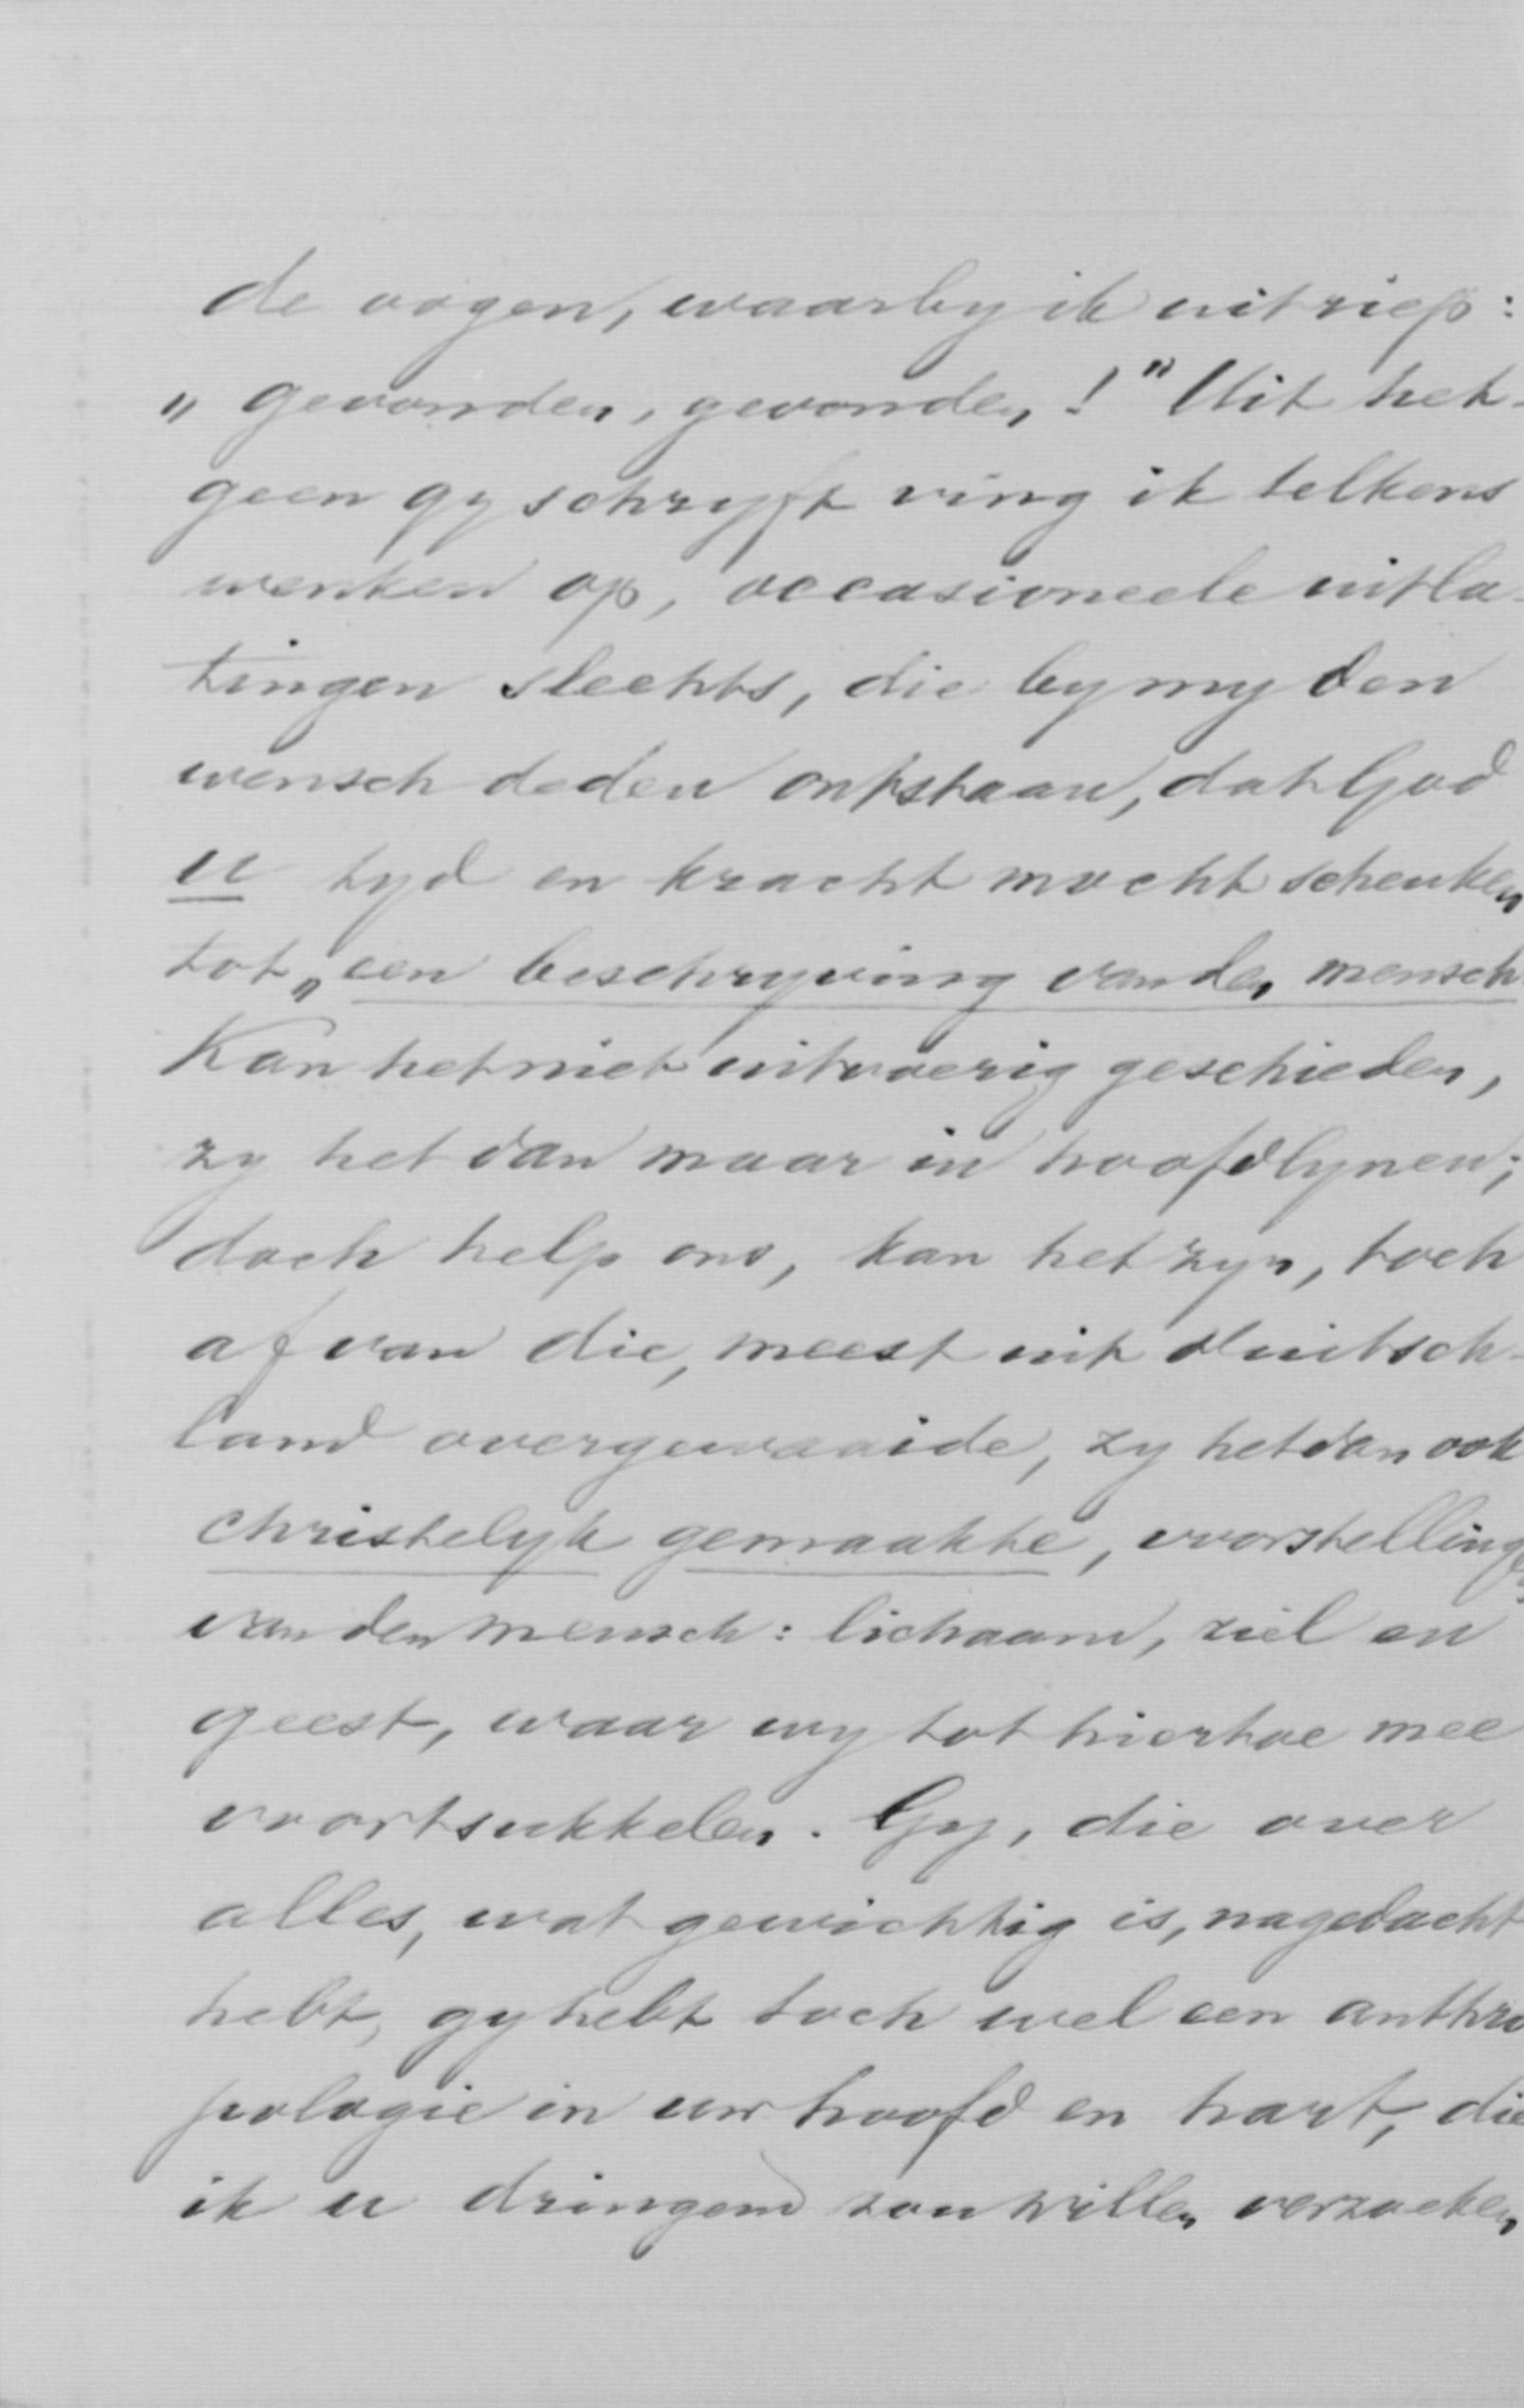 de oogen, waarby ik uitriep:
„ Gevonden, gevonden! " Uit het-
geen gy schryft ving ik telkens
wenken op, occasioneele uitla-
tingen slechts, die by my den
wensch deden ontstaan, dat God
u tyd en kracht mocht schenken
tot „een beschryving van den mensch
Kan het niet uitvoerig geschieden,
zy het dan maar in hoofdlynen;
doch help ons, kan het zyn, toch
af van die, meest uit Duitsch-
land overgewaaide, zy het dan ook
christelyk gemaakte, voorstellingen
van den mensch: lichaam, ziel en
geest, waar wy tot hiertoe mee
voortsukkelen. Gy, die over
alles, wat gewichtig is, nagedacht
hebt, gy hebt toch wel een anthro
pologie in uw hoofd en hart, die
ik u dringend zou willen verzoeken